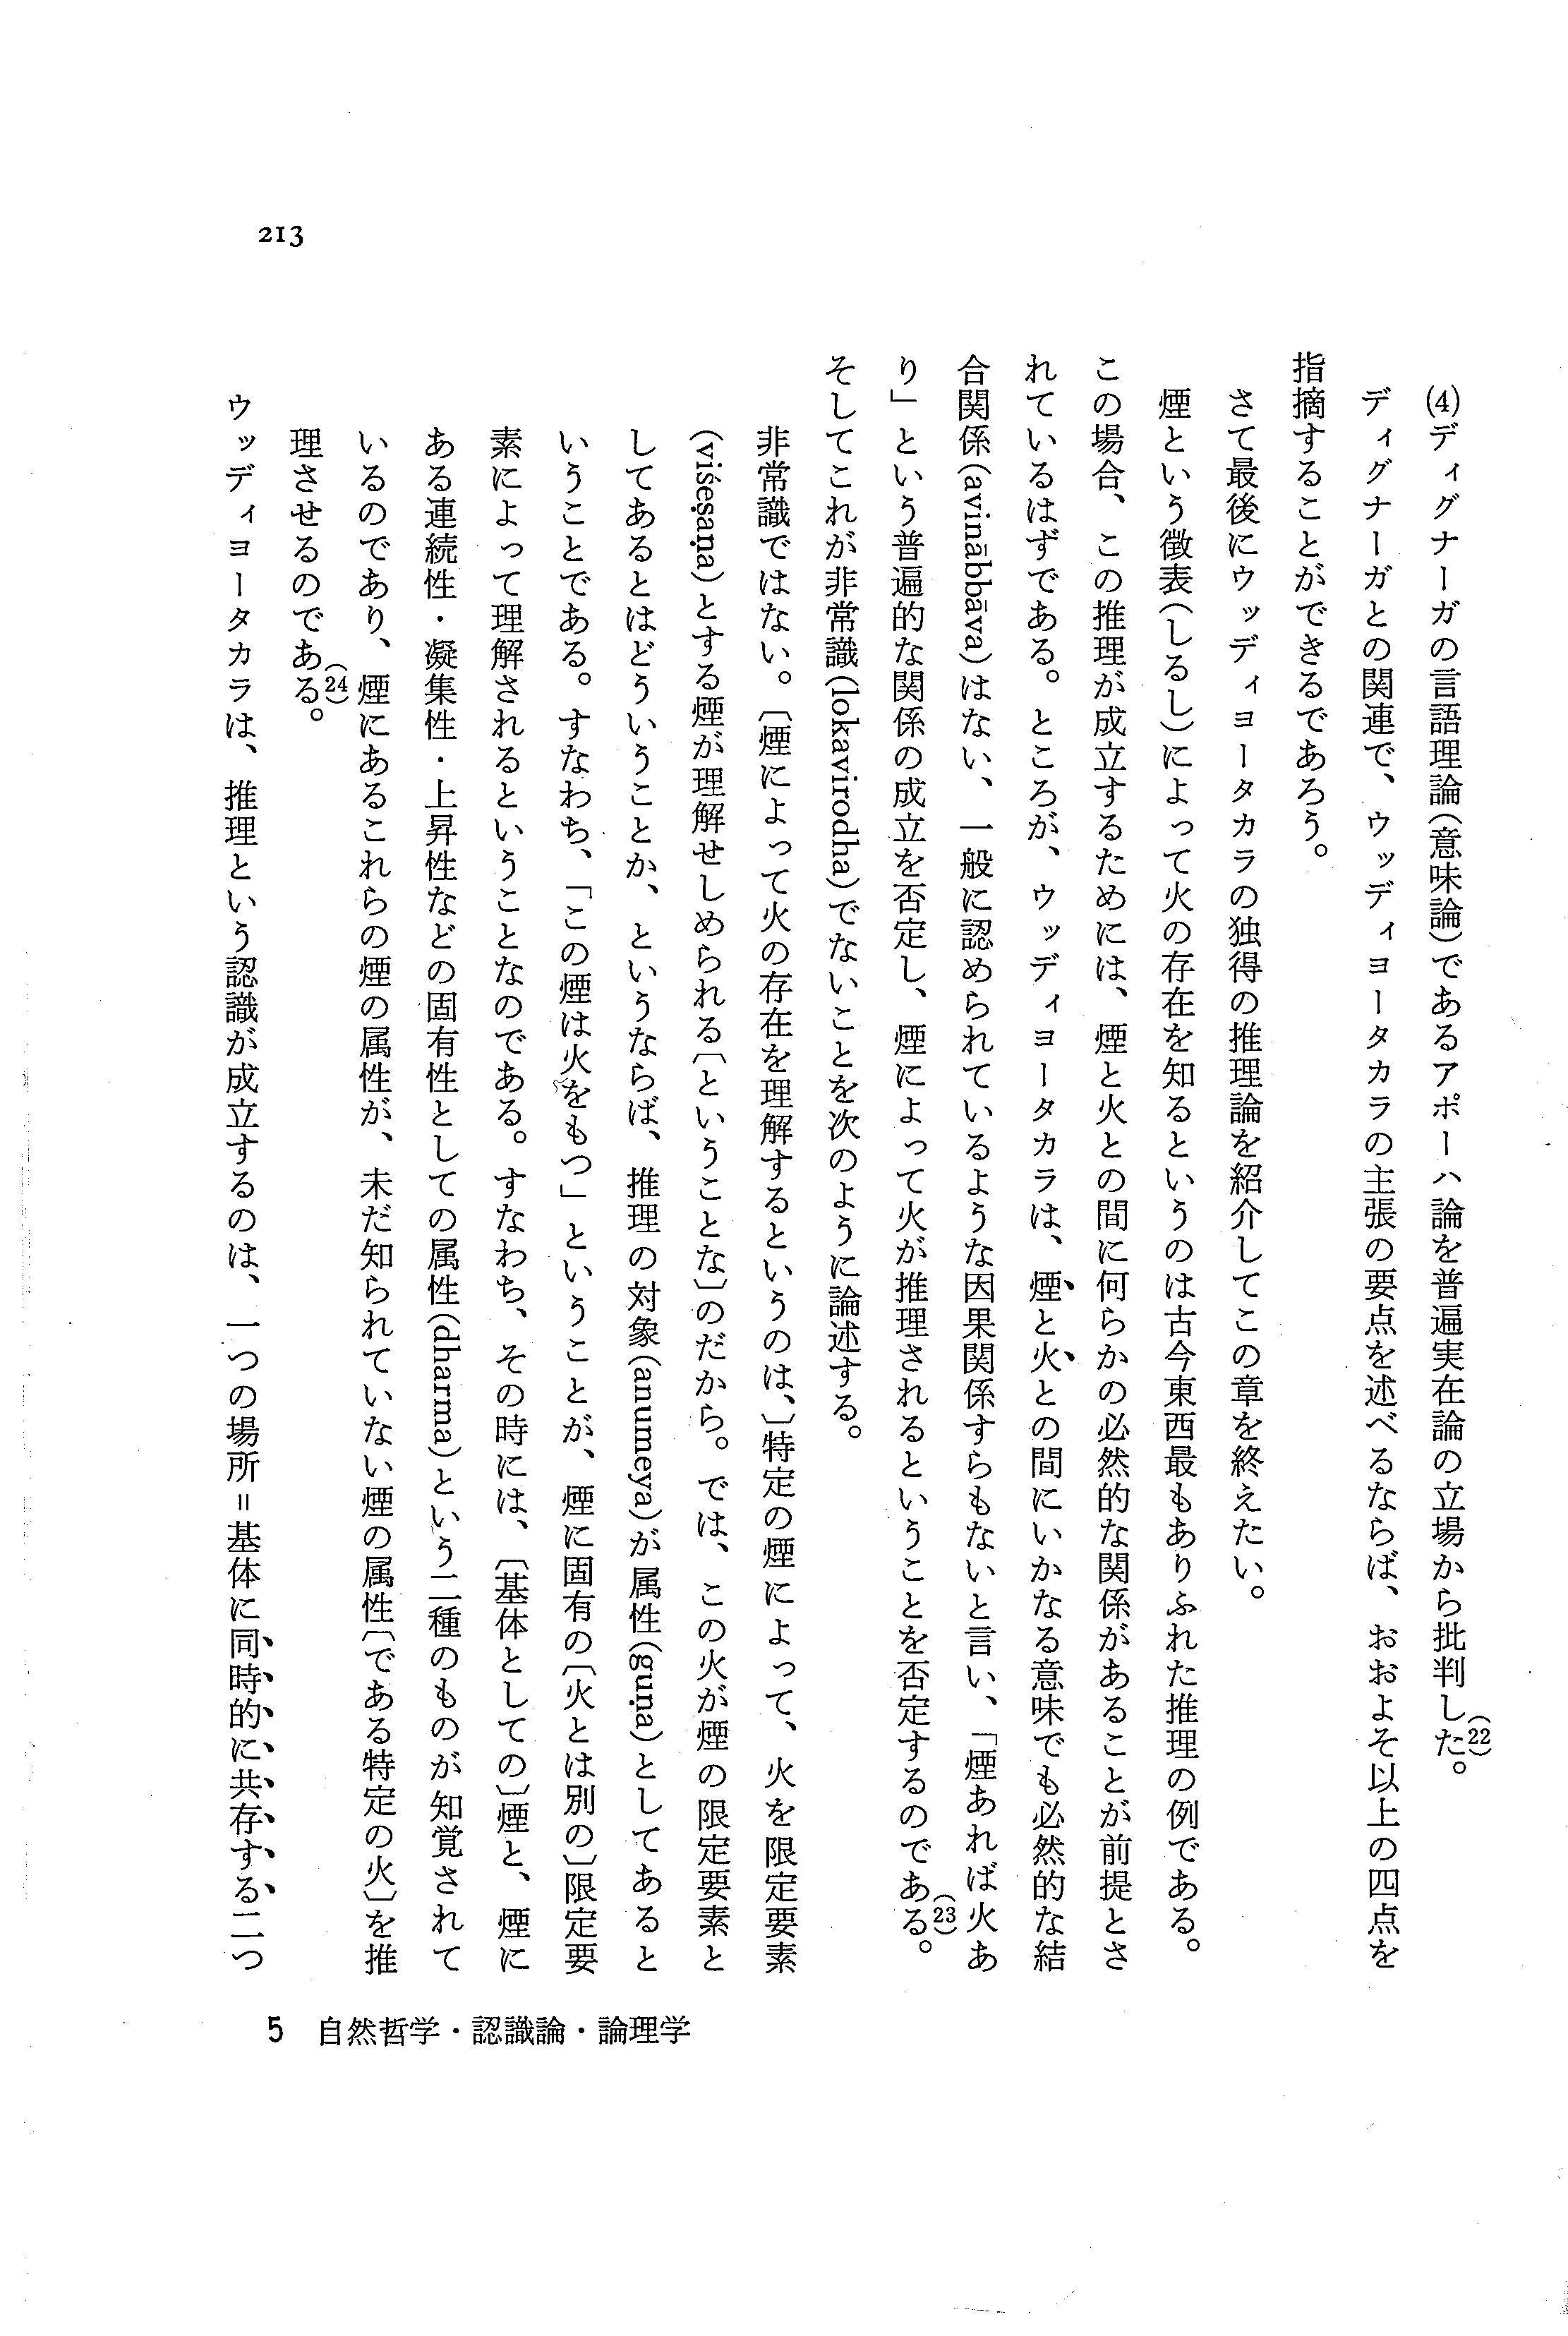 (4)ディグナーガの言語理論(意味論)であるアポーハ論を普遍実在論の立場から批判した。(22)
ディグナーガとの関連で、ウッディヨータカラの主張の要点を述べるならば、おおよそ以上の四点を
指摘することができるであろう。
さて最後にウッディヨータカラの独得の推理論を紹介してこの章を終えたい。
煙という徴表(しるし)によって火の存在を知るというのは古今東西最もありふれた推理の例である。
この場合、この推理が成立するためには、煙と火との間に何らかの必然的な関係があることが前提とさ
れているはずである。ところが、ウッディヨータカラは、煙と火との間にいかなる意味でも必然的な結
合関係(avinābbāva)はない、一般に認められているような因果関係すらもないと言い、「煙あれば火あ
り」という普遍的な関係の成立を否定し、煙によって火が推理されるということを否定するのである。(23)
そしてこれが非常識(lokavirodha)でないことを次のように論述する。
非常識ではない。〔煙によって火の存在を理解するというのは、〕特定の煙によって、火を限定要素
(viśeṣaṇa)とする煙が理解せしめられる〔ということな〕のだから。では、この火が煙の限定要素と
してあるとはどういうことか、というならば、推理の対象(anumeya)が属性(guṇa)としてあると
いうことである。すなわち、「この煙は火をもつ」ということが、煙に固有の〔火とは別の〕限定要
素によって理解されるということなのである。すなわち、その時には、〔基体としての〕煙と、煙に
ある連続性・凝集性・上昇性などの固有性としての属性(dharma)という二種のものが知覚されて
いるのであり、煙にあるこれらの煙の属性が、未だ知られていない煙の属性〔である特定の火〕を推
理させるのである。(24)
ウッディヨータカラは、推理という認識が成立するのは、一つの場所＝基体に同時的に共存する二つ
5 自然哲学・認識論・論理学
213